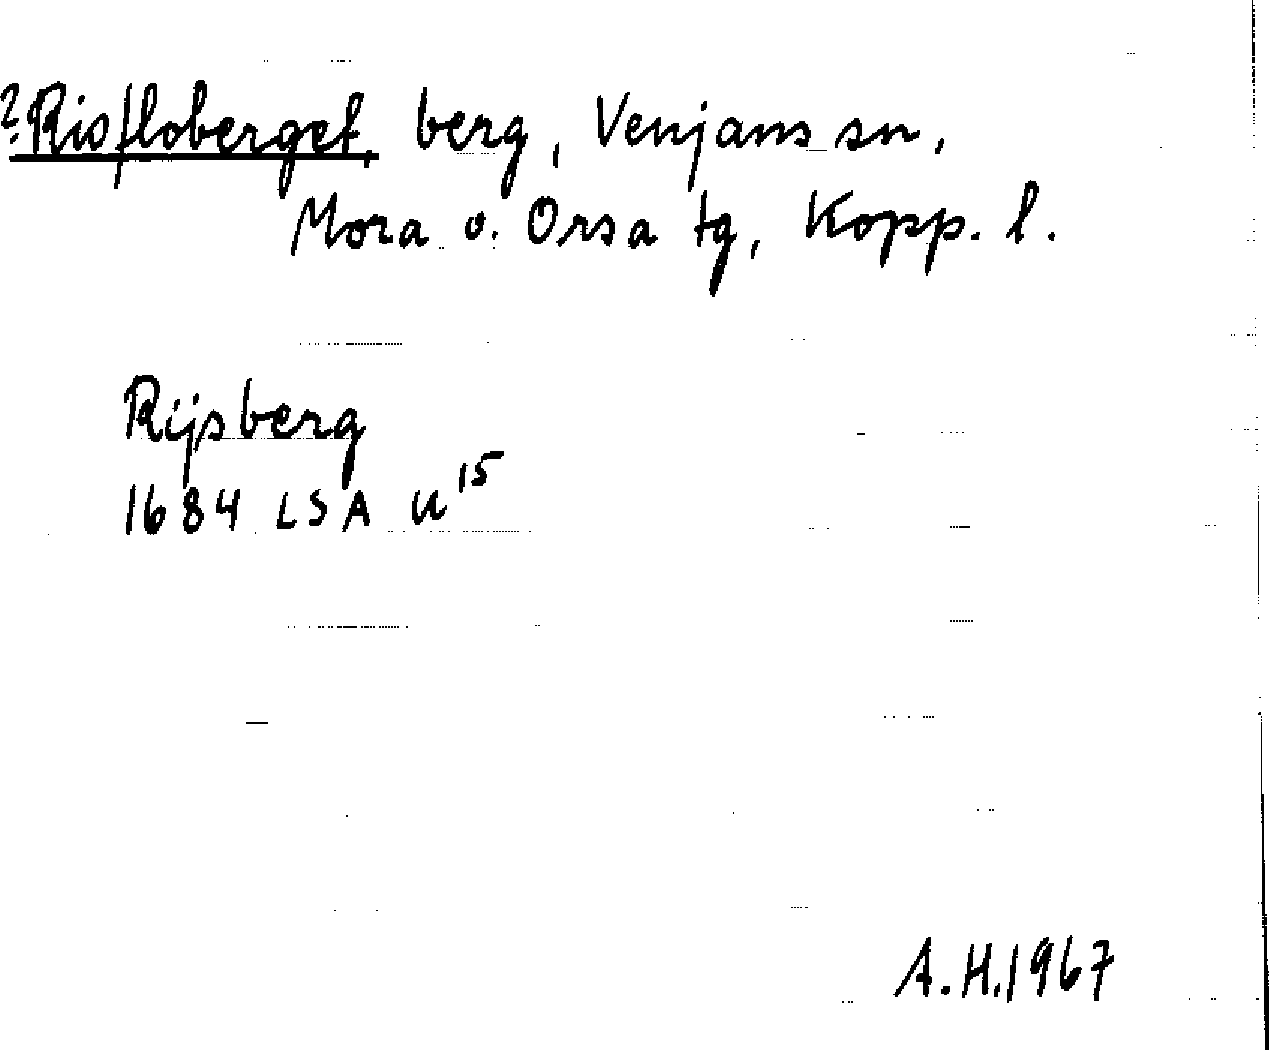 ?Risfloberget, berg, Venjans sn,
Mora o. Orsa tg, Kopp. l.
Rijsberg
1684 LSA U15
A.H.1967